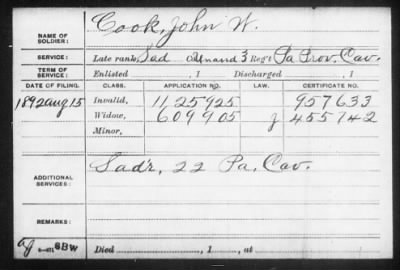 NAME OF SOLDIER: Cook, John W.
SERVICE: Late rank, Sad Unand 3 Reg't Pa Prov. Cav.
TERM OF SERVICE: Enlisted , 1 Discharged , 1
DATE OF FILING. CLASS. APPLICATION NO. LAW. CERTIFICATE NO.
1892 Aug 15 Invalid, 1125925 957633
Widow, 609905 J 455742
Minor,
ADDITIONAL SERVICES: Sad'r, 22 Pa. Cav.
REMARKS:
Died , 1 , at